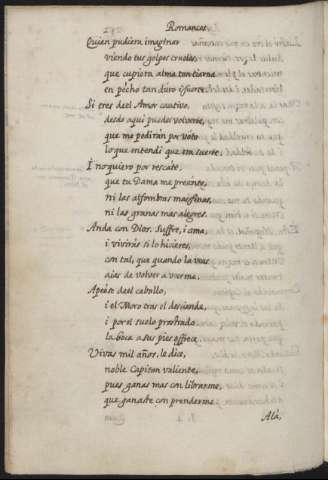 Romances.
Quien pudiera imaginar
viendo tus golpes crueles,
que cupiera alma tan tierna
en pecho tan duro i fuerte.
Si eres del Amor cautivo,
desde aqui puedes volverte,
que me pedirán por voto
lo que entendí que era suerte.
I no quiero por rescate,
que tu Dama me presente,
ni las alfombras mas finas,
ni las granas mas alegres.
Anda con Dios, suffre, i ama,
i vivirás si lo hizieres,
con tal, que quando la veas
aias de volver a verme.
Apeóse del caballo,
i el Moro tras el desciende,
i por el suelo prostrado
la boca a sus pies offrece.
Vivas mil años, le dice,
noble Capitan valiente,
pues ganas mas con librarme,
que ganaste con prenderme.
Alá,